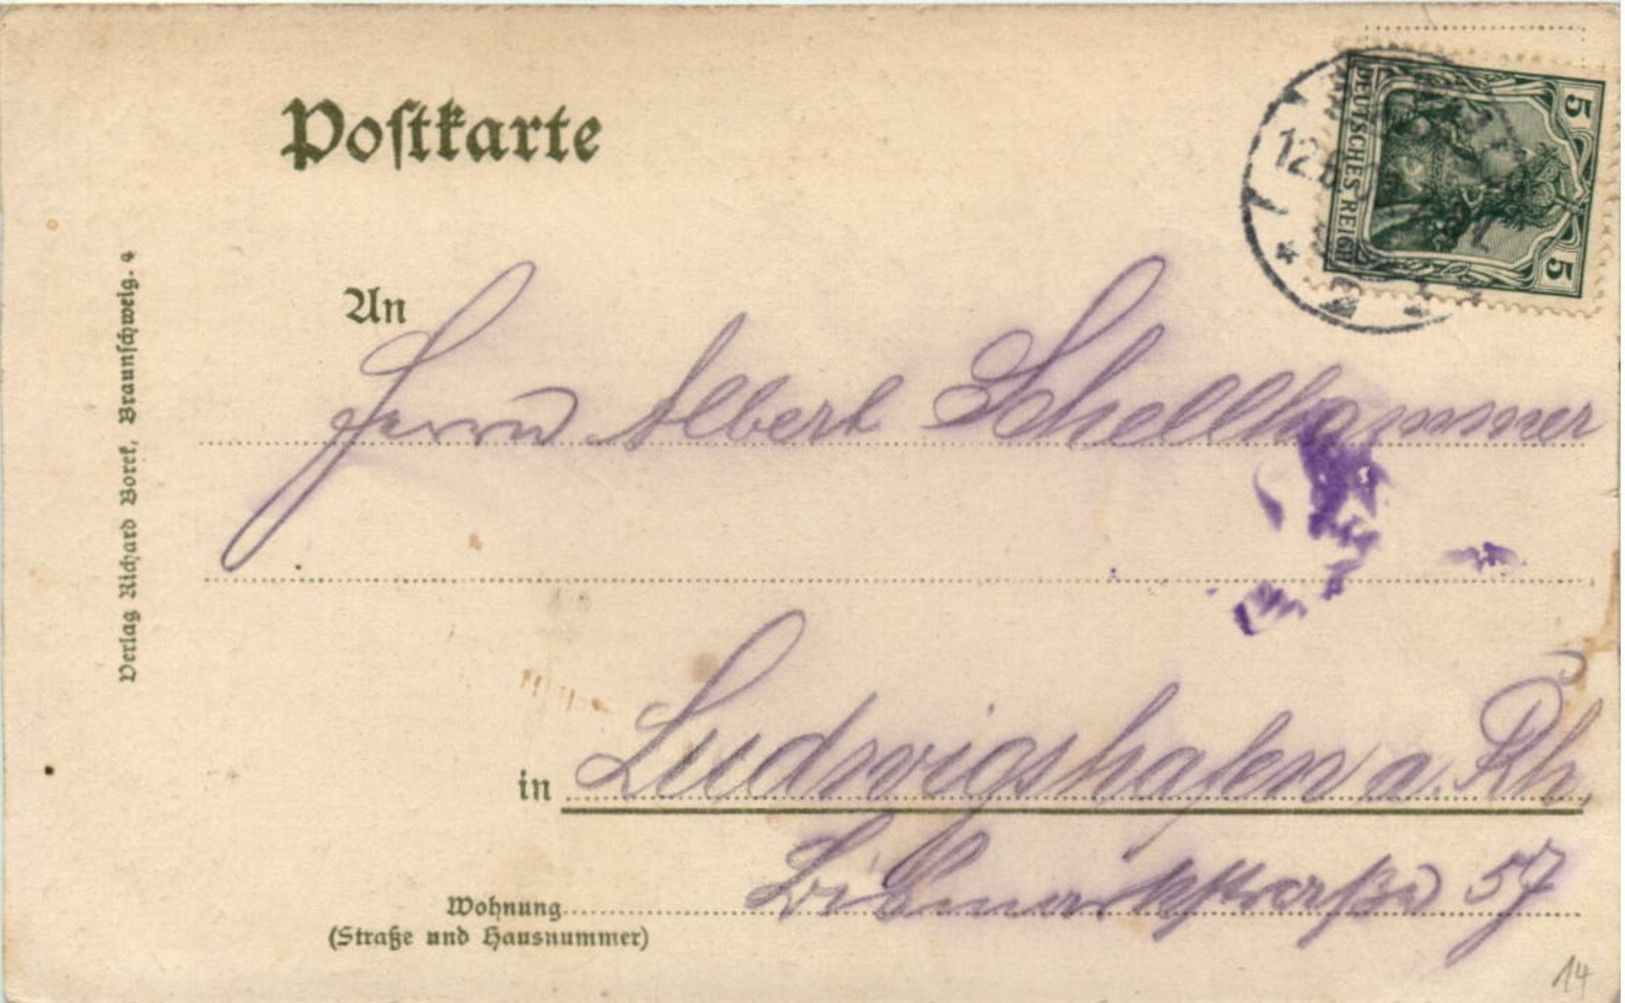 Postkarte
5
DEUTSCHES REICH
5
12.6
An
Herrn Albert Schellhammer
Ludwigshafen a. Rh.
in
Bismarkstraße 57
Wohnung
(Straße und Hausnummer)
Verlag Richard Borek, Braunschweig. 4
14